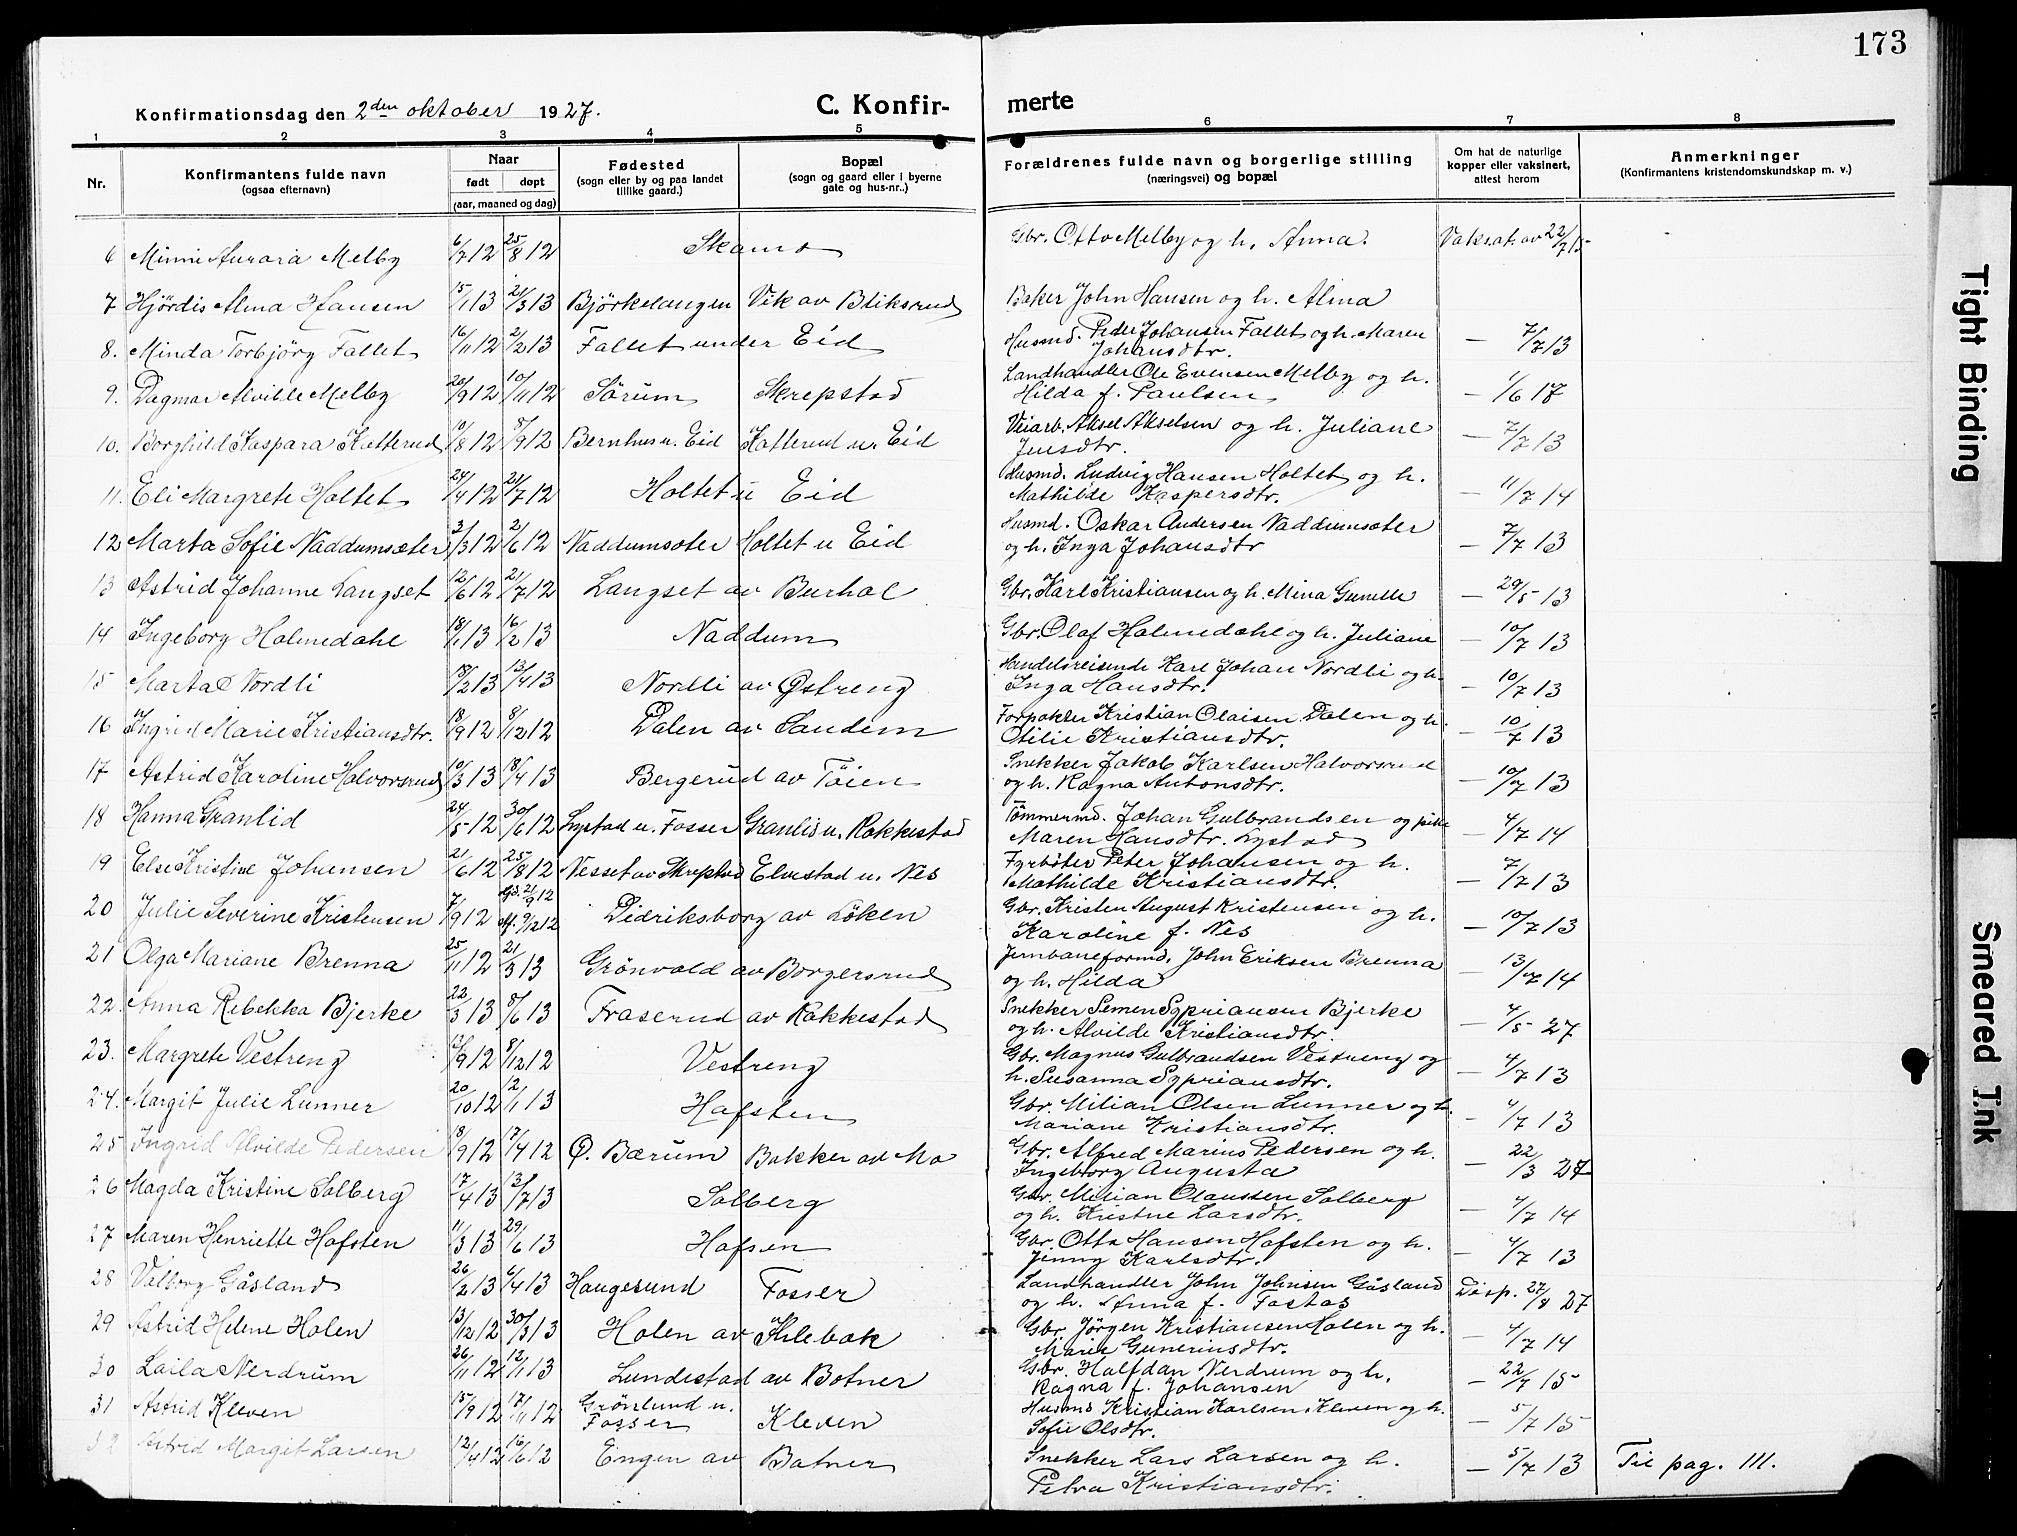 173
Konfirmationsdag den 2den oktober 1927.
C. Konfirmerte
1 2 3 4 5 6 7 8
Nr.
Konfirmantens fulde navn (ogsaa efternavn)
Naar født døpt (aar, maaned og dag)
Fødested (sogn eller by og paa landet tillike gaard.)
Bopæl (sogn og gaard eller i byerne gate og hus-nr..)
Forældrenes fulde navn og borgerlige stilling (næringsvei) og bopæl
Om hat de naturlige kopper eller vaksinert, attest herom
Anmerkninger (Konfirmantens kristendomskundskap m. v.)
6 Minni Aurora Melby 6/7 12 25/8 12 Skamo Gbr. Otto Melby og h. Anna. Vaksat. av 22/7 15
7 Hjördis Alma Hansen 15/1 13 24/3 13 Björkelangen Vik av Bliksrud Baker John Hansen og h. Alma
8. Minda Torbjörg Fallet 16/11 12 2/2 13 Fallet under Eid Husmd. Peder Johansen Fallet og h. Maren Johansdtr. — 7/7 13
9. Dagmar Alvilde Melby 20/9 12 10/11 12 Sörum Skrepstad Landhandler Ole Evensen Melby og h. Hilda f. Paulsen — 1/6 17
10. Borghild Kaspara Katterud 10/8 12 8/9 12 Bernhus u. Eid Katterud u. Eid Veiarb. Aksel Akselsen og h. Juliane Jensdtr. — 7/7 13
11. Eli Margrete Holtet 24/4 12 21/7 12 Holtet u Eid Husmd. Ludvig Hansen Holtet og h. Mathilde Kaspersdtr. — 11/7 14
12 Marta Sofie Naddumsæter 3/3 12 2/6 12 Naddumsæter Holtet u Eid Husmd. Oskar Andersen Naddumsæter og h. Inga Johansdtr — 7/7 13
13 Astrid Johanne Langset 12/6 12 21/7 12 Langset av Burhol Gbr. Karl Kristiansen og h. Mina Gunelle — 29/5 13
14 Ingeborg Holmedahl 18/1 13 16/2 13 Naddum Gbr. Olaf Holmedahl og h. Juliane — 10/7 13
15 Marta Nordli 18/2 13 13/4 13 Nordli av Østreng Handelsreisende Karl Johan Nordli og h. Inga Hansdtr. — 10/7 13
16 Ingrid Marie Kristiansdtr. 18/9 12 8/12 12 Dalen av Sandem Forpakter Kristian Olaisen Dalen og h. Otilie Kristiansdtr. — 10/7 13
17 Astrid Karoline Halvorsrud 10/3 13 18/4 13 Bergerud av Töien Snekker Jakob Karlsen Halvorsrud og h. Ragna Antonsdtr. — 10/7 13
18 Hanna Granlid 24/5 12 30/6 12 Lystad u. Fosser Granli u. Kakkestad Tömmermd. Johan Gulbrandsen og pike Maren Hansdtr. Lystad — 4/7 14
19 Else Kristine Johansen 21/6 12 25/8 12 Nesset av Skrepstad Elvestad u. Nes Fyrböter Peter Johansen og h. Mathilde Kristiansdtr. — 7/7 13
20 Julie Severine Kristensen 7/9 12 21/9 12 9/12 12 Didriksborg av Löken Gbr. Kristen August Kristensen og h. Karoline f. Nes — 10/7 13
21 Olga Mariane Brenna 25/11 12 21/3 13 Grönvold av Borgersrud Jernbaneformd. John Eriksen Brenna og h. Hilda — 13/7 14
22. Anna Rebekka Bjerke 22/3 13 8/6 13 Fraserud av Kakkestad Snekker Semen Sypriansen Bjerke og h. Alvilde Kristiansdtr. — 4/5 27
23. Margrete Vestreng 13/9 12 8/12 12 Vestreng Gbr. Magnus Gulbrandsen Vestreng og h. Susanna Sypriansdtr. — 4/7 13
24. Margit Julie Lunner 20/10 12 12/1 13 Hafsten Gbr. Milian Olsen Lunner og h. Mariane Kristiansdtr. — 4/7 13
25 Ingrid Alvilde Pedersen 18/9 12 17/4 12 Ø. Bærum Bakker av Mo Gbr. Alfred Marius Pedersen og h. Ingeborg Augusta — 22/3 27
26 Magda Kristine Solberg 17/4 13 13/7 13 Solberg Gbr. Milian Olaussen Solberg og h. Kristne Larsdtr. — 4/7 14
27 Maren Henriette Hafsten 11/3 13 29/6 13 Hafsen Gbr. Otto Hansen Hafsten og h. Jenny Karlsdtr. — 4/7 13
28 Valborg Gåsland 26/2 13 6/4 13 Haugesund Fosser Landhandler John Johnsen Gåsland og h. Anna f. Fastas Disp. 27/8 27
29 Astrid Helene Holen 13/12 12 30/3 13 Holen av Ihlebæk Gbr. Jörgen Kristiansen Holen og h. Marie Gunerinsdtr. — 4/7 14
30 Laila Nerdrum 26/11 12 12/1 13 Lundestad av Botner Gbr. Halfdan Nerdrum og h. Ragna f. Johansen — 22/7 15
31 Astrid Kleven 15/9 12 17/11 12 Grönlund u. Fosser Kleven Husmd Kristian Karlsen Kleven og h. Sofie Olsdtr. — 5/7 15
32 Astrid Margit Larsen 12/4 12 16/6 12 Engen av Botner Snekker Lars Larsen og h. Petra Kristiansdtr. — 5/7 13 Til pag. 111.
Tight Binding
Smeared Ink